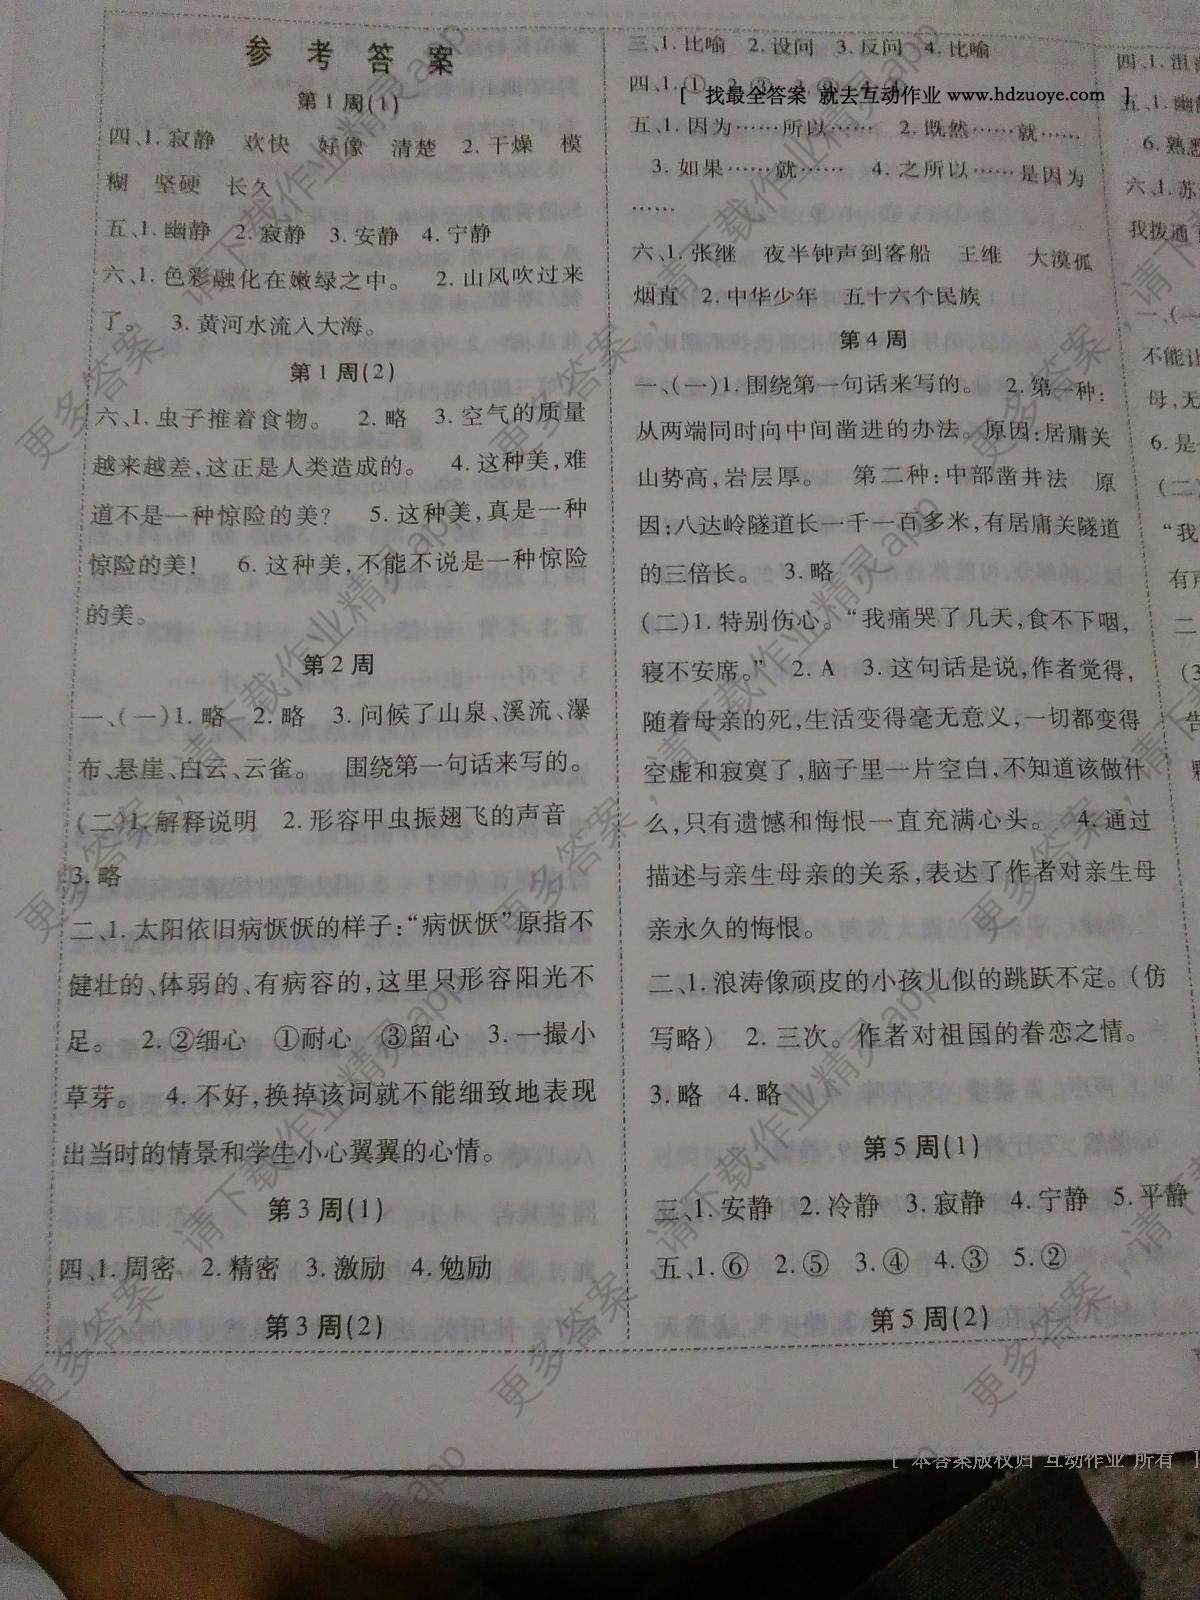 参考答案
第1周(1)
四、1.寂静 欢快 好像 清楚 2.干燥 模
糊 坚硬 长久
五、1.幽静 2.寂静 3.安静 4.宁静
六、1.色彩融化在嫩绿之中。 2.山风吹过来
了。 3.黄河水流入大海。
第1周(2)
六、1.虫子推着食物。 2.略 3.空气的质量
越来越差,这正是人类造成的。 4.这种美,难
道不是一种惊险的美? 5.这种美,真是一种
惊险的美! 6.这种美,不能不说是一种惊险
的美。
第2周
一、(一)1.略 2.略 3.问候了山泉、溪流、瀑
布、悬崖、白云、云雀。 围绕第一句话来写的。
(二)1.解释说明 2.形容甲虫振翅飞的声音
3.略
二、1.太阳依旧病恹恹的样子:“病恹恹”原指不
健壮的、体弱的、有病容的,这里只形容阳光不
足。 2.②细心 ①耐心 ③留心 3.一撮小
草芽。 4.不好,换掉该词就不能细致地表现
出当时的情景和学生小心翼翼的心情。
第3周(1)
四、1.周密 2.精密 3.激励 4.勉励
第3周(2)
三、1.比喻 2.设问 3.反问 4.比喻
四、1.① 2.③
[ 找最全答案 就去互动作业 www.hdzuoye.com ]
五、1.因为……所以…… 2.既然……就……
3.如果……就…… 4.之所以……是因为
……
六、1.张继 夜半钟声到客船 王维 大漠孤
烟直 2.中华少年 五十六个民族
第4周
一、(一)1.围绕第一句话来写的。 2.第一种:
从两端同时向中间凿进的办法。原因:居庸关
山势高,岩层厚。 第二种:中部凿井法 原
因:八达岭隧道长一千一百多米,有居庸关隧道
的三倍长。 3.略
(二)1.特别伤心。“我痛哭了几天,食不下咽,
寝不安席。” 2.A 3.这句话是说,作者觉得,
随着母亲的死,生活变得毫无意义,一切都变得
空虚和寂寞了,脑子里一片空白,不知道该做什
么,只有遗憾和悔恨一直充满心头。 4.通过
描述与亲生母亲的关系,表达了作者对亲生母
亲永久的悔恨。
二、1.浪涛像顽皮的小孩儿似的跳跃不定。(仿
写略) 2.三次。作者对祖国的眷恋之情。
3.略 4.略
第5周(1)
三、1.安静 2.冷静 3.寂静 4.宁静 5.平静
五、1.⑥ 2.⑤ 3.④ 4.③ 5.②
第5周(2)
四、1.沮
五、1.幽静
6.熟悉
六、1.苏
我拨通
一、(一
不能让
母,无
6.是
(二
“我
有声
二
(3
告
[ 本答案版权归 互动作业 所有 ]
更多答案,请下载作业精灵app